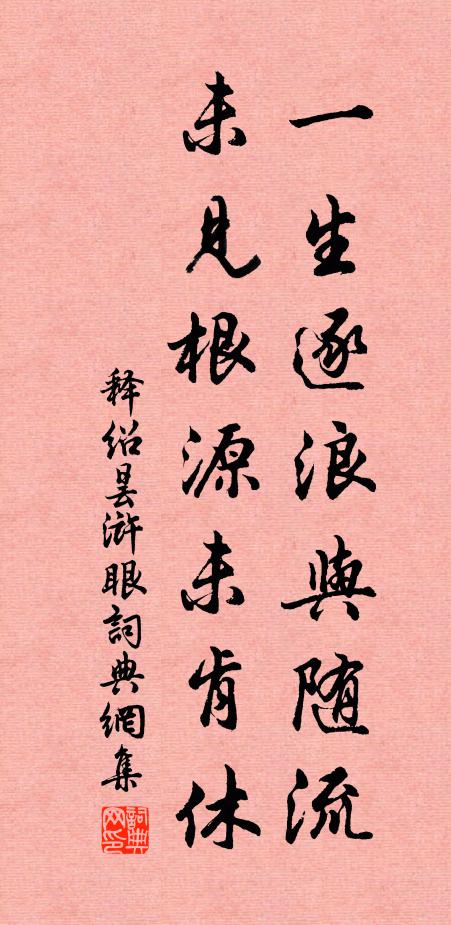 一生逐浪與随流
未見根源未肯休
释绍昙浒眼詞典網集
詞典网印